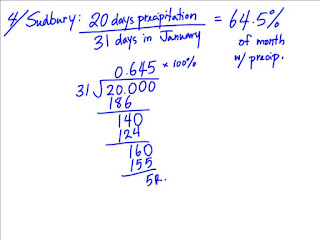 4/ Sudbury: 20 days precipitation = 64.5%
31 days in January
of month
w/ precip.
0.645 × 100%
31 20.000
186
140
124
160
155
5R.